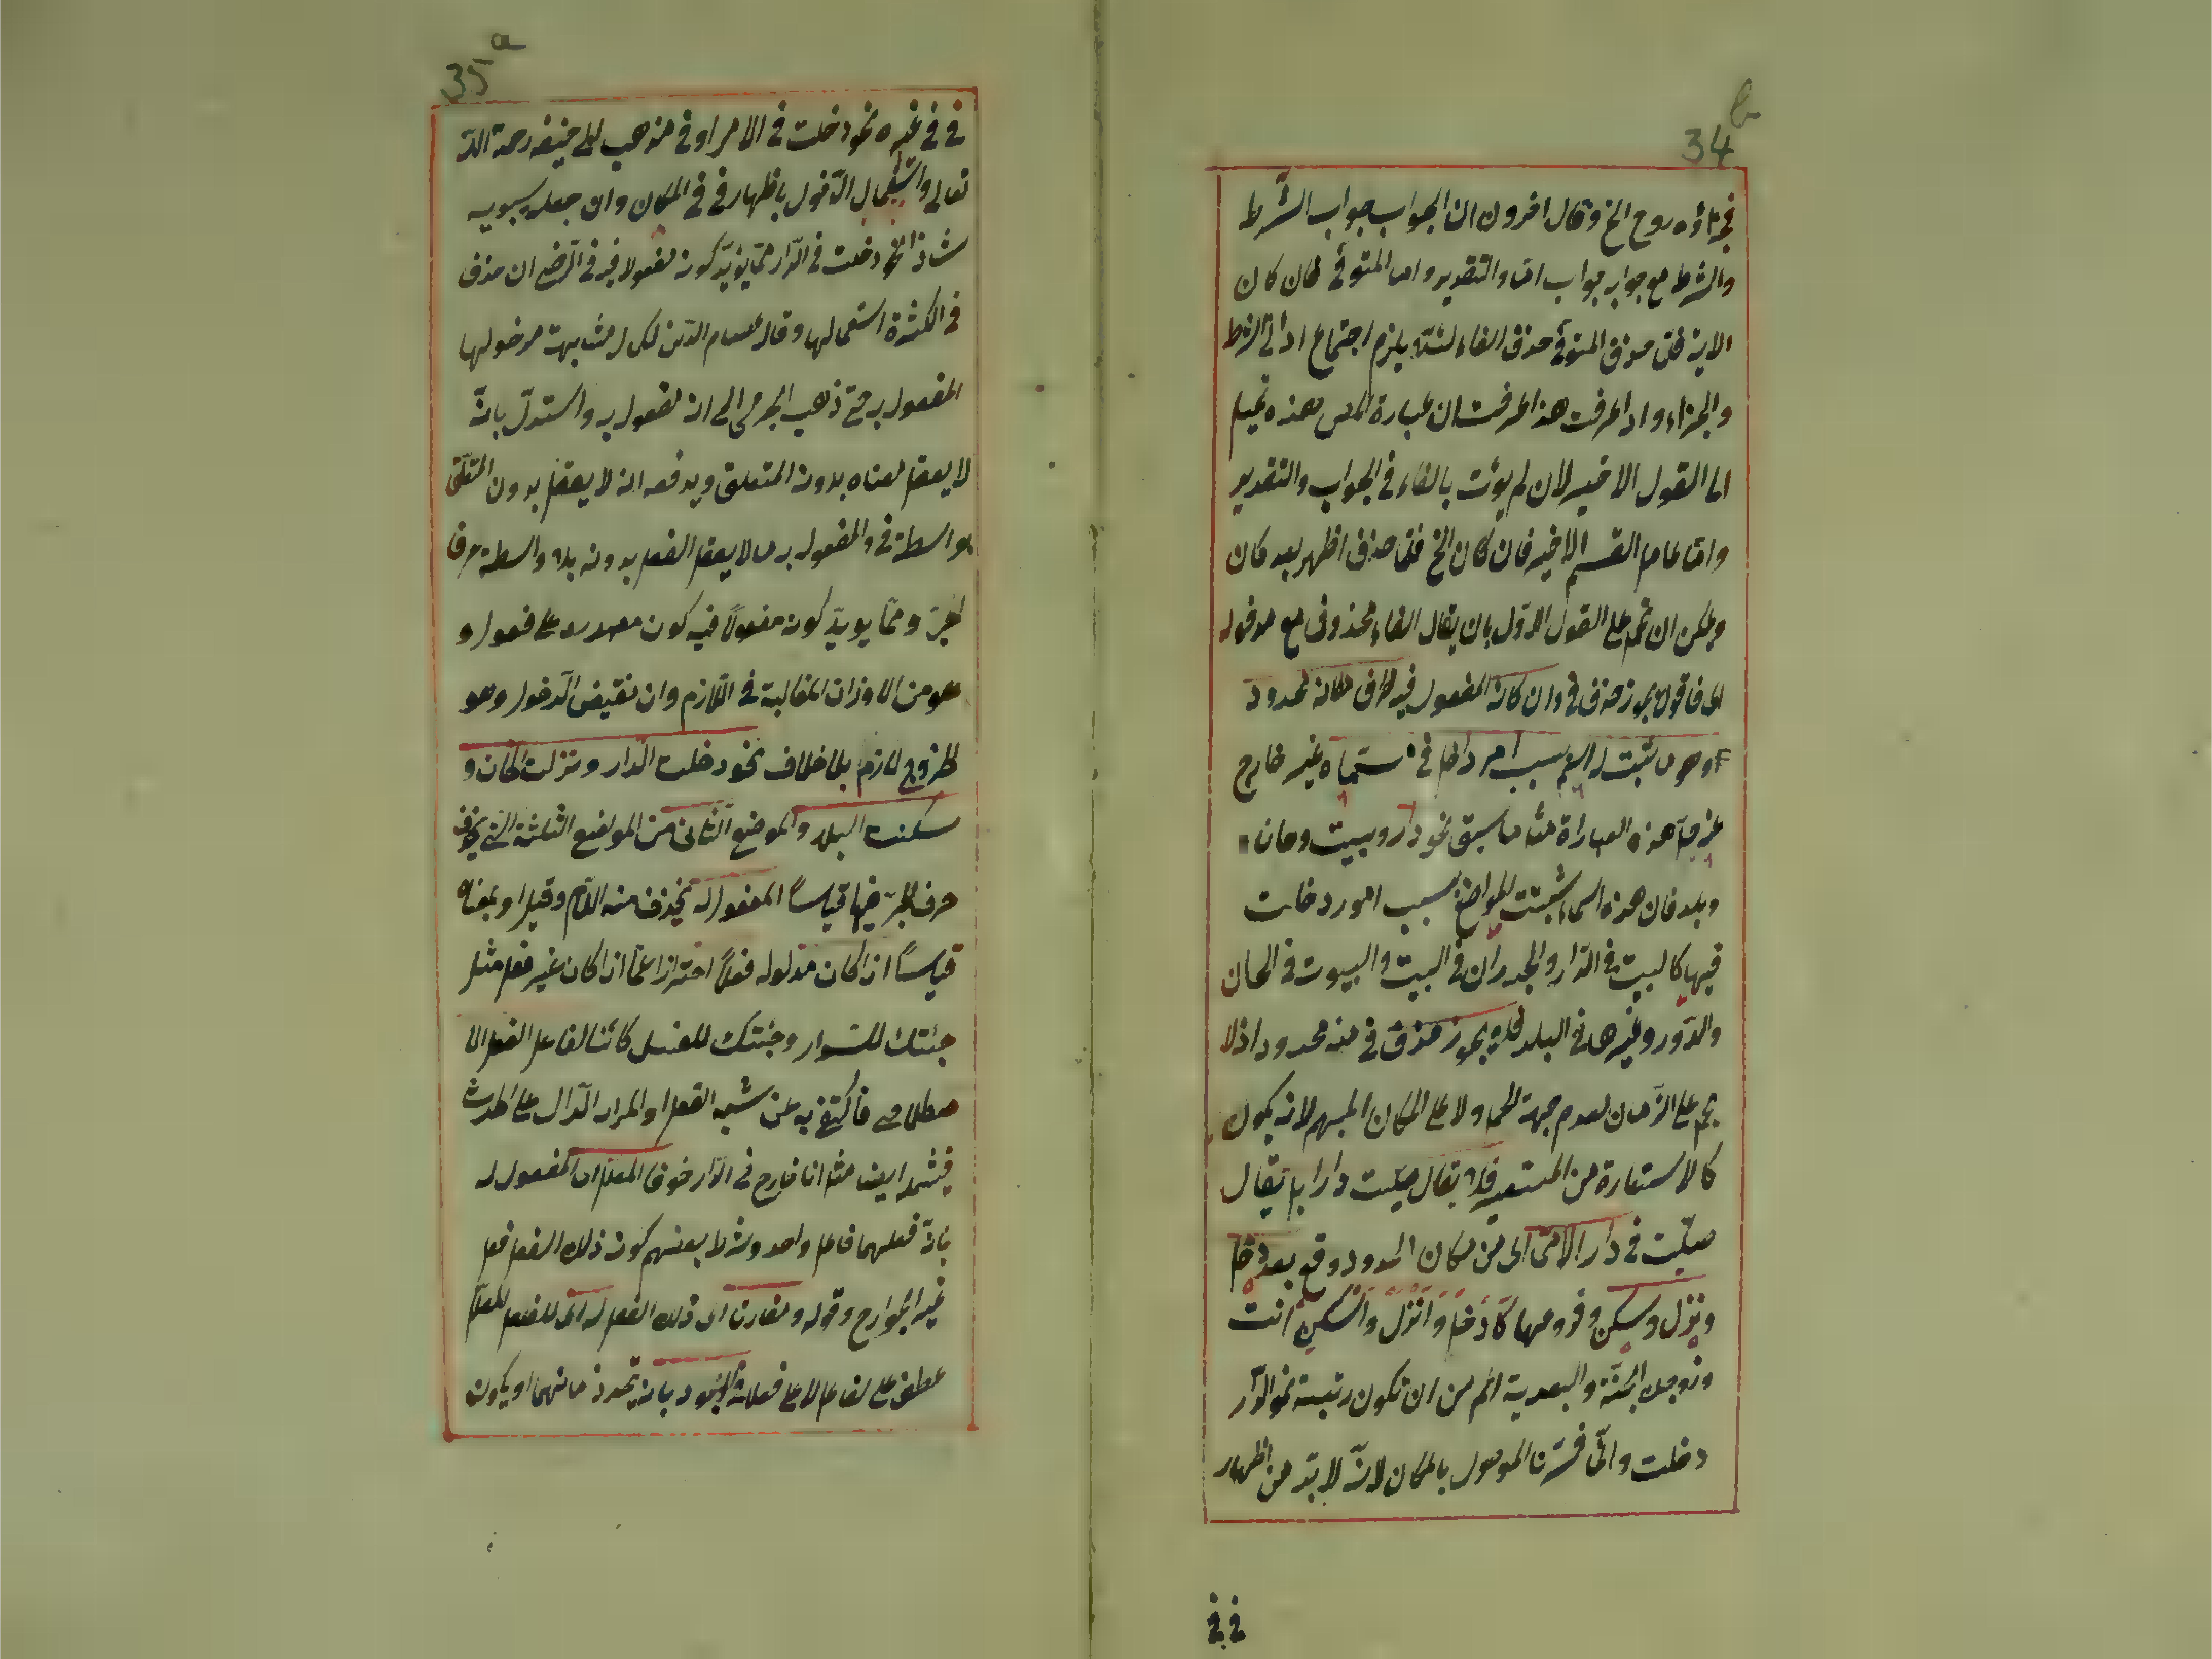 34 b
فجزاؤه روح الخ وقال اخرون ان الجواب جواب الشرط
والشرط مع جوابه جواب اما والتقدير واما المتوفى فان كان
الاية فلما حذف المتوفى حذف الفاء لئلا يلزم اجتماع اداتى الشرط
والجزاء واذا عرفت هذا عرفت ان عبارة المص هذه تميل
الى القول الاخير لان لم يؤت بالفاء فى الجواب والتقدير
واما عامل القسم الاخير فان كان الخ فلما حذف اظهر بعد كان
ويمكن ان تحمل على القول الاول بان يقال الفاء محذوف مع مدخوله
اى فاقول يجوز حذف فى وان كان المفعول فيه ظرف مكان محدود
وهو ما ثبت له الاسم بسبب امر داخل فى مسماه غير خارج
عنه هذه العبارة مثل ما سبق نحو دار وبيت وخان
وبلد فان هذه اسماء ثبتت للمواضع بسبب امور دخلت
فيها كالبيت فى الدار والجدران فى البيت والبيوت فى الخان
والدور وغيرها فى البلد فلا يجوز حذف فى منه محدود اذ لا
يحمل على الزمان لعدم جهة الحمل ولا على المكان المبهم لانه يكون
كالاستعارة من المستعير فلا يقال صليت دارا بل يقال
صليت فى دار الا مما اى من مكان المحدود وقع بعد دخل
ونزل وسكن وفروعها كَادخل وَانْزِلْ وَاسْكُنْ انت
وزوجك الجنة والبعدية اعم من ان تكون رتبية نحو الدار
دخلت وانما فسرنا الموصول بالمكان لانه لا بد من اظهار
فى فى
35 a
فى فى غيره نحو دخلت فى الامر او فى مذهب ابى حنيفه رحمة الله
تعالى واستعمال الدخول باظهار فى فى المكان وان جعله سيبويه
شاذا نحو دخلت فى الدار مما يؤيد كونه مفعولا فيه فى الرضى ان حذف
فى لكثرة استعمالها وقال عصام الدين لكمال مشابهة مدخولها
المفعول به حتى ذهب الجرمى الى انه مفعول به واستدل بانه
لا يعقل معناه بدون المتعلق ويدفعه انه لا يعقل بدون المتعلق
بواسطة فى والمفعول به ما لا يعقل الفعل بدونه بلا واسطة حرف
الجر ومما يويد كونه مفعولًا فيه كون مصدره على فعول و
هو من الاوزان الغالبة فى اللازم وان نقيض الدخول وهو
الخروج لازم بلا خلاف نحو دخلت الدار ونزلت الخان و
سكنت البلد والموضع الثانى من المواضع الثلثة التى يحذف
حرف الجر فيها قياسًا المفعول له يحذف منه اللام وقيل او بمعناه
قياسًا اذا كان مدلوله فعلًا احترازا عما اذا كان غير فعل مثل
جئتك للسوار وجئتك للغسل كائنا لفاعل الفعل الا
صطلاحى فاكتفى به عن شبه الفعل او المراد الدال على الحدث
فيشمل ايضا مثل انا خارج فى الدار خوفا المعلل اى المفعول له
بان فعلهما فاعل واحد وشرط بعضهم كون ذلك الفعل فعل
غير الجوارح وقوله ومقارنا اى ذلك الفعل له اى للفعل المعلل
عطف على لفاعل لا على فعلا فى الوجود بان يتحد زمانهما او يكون